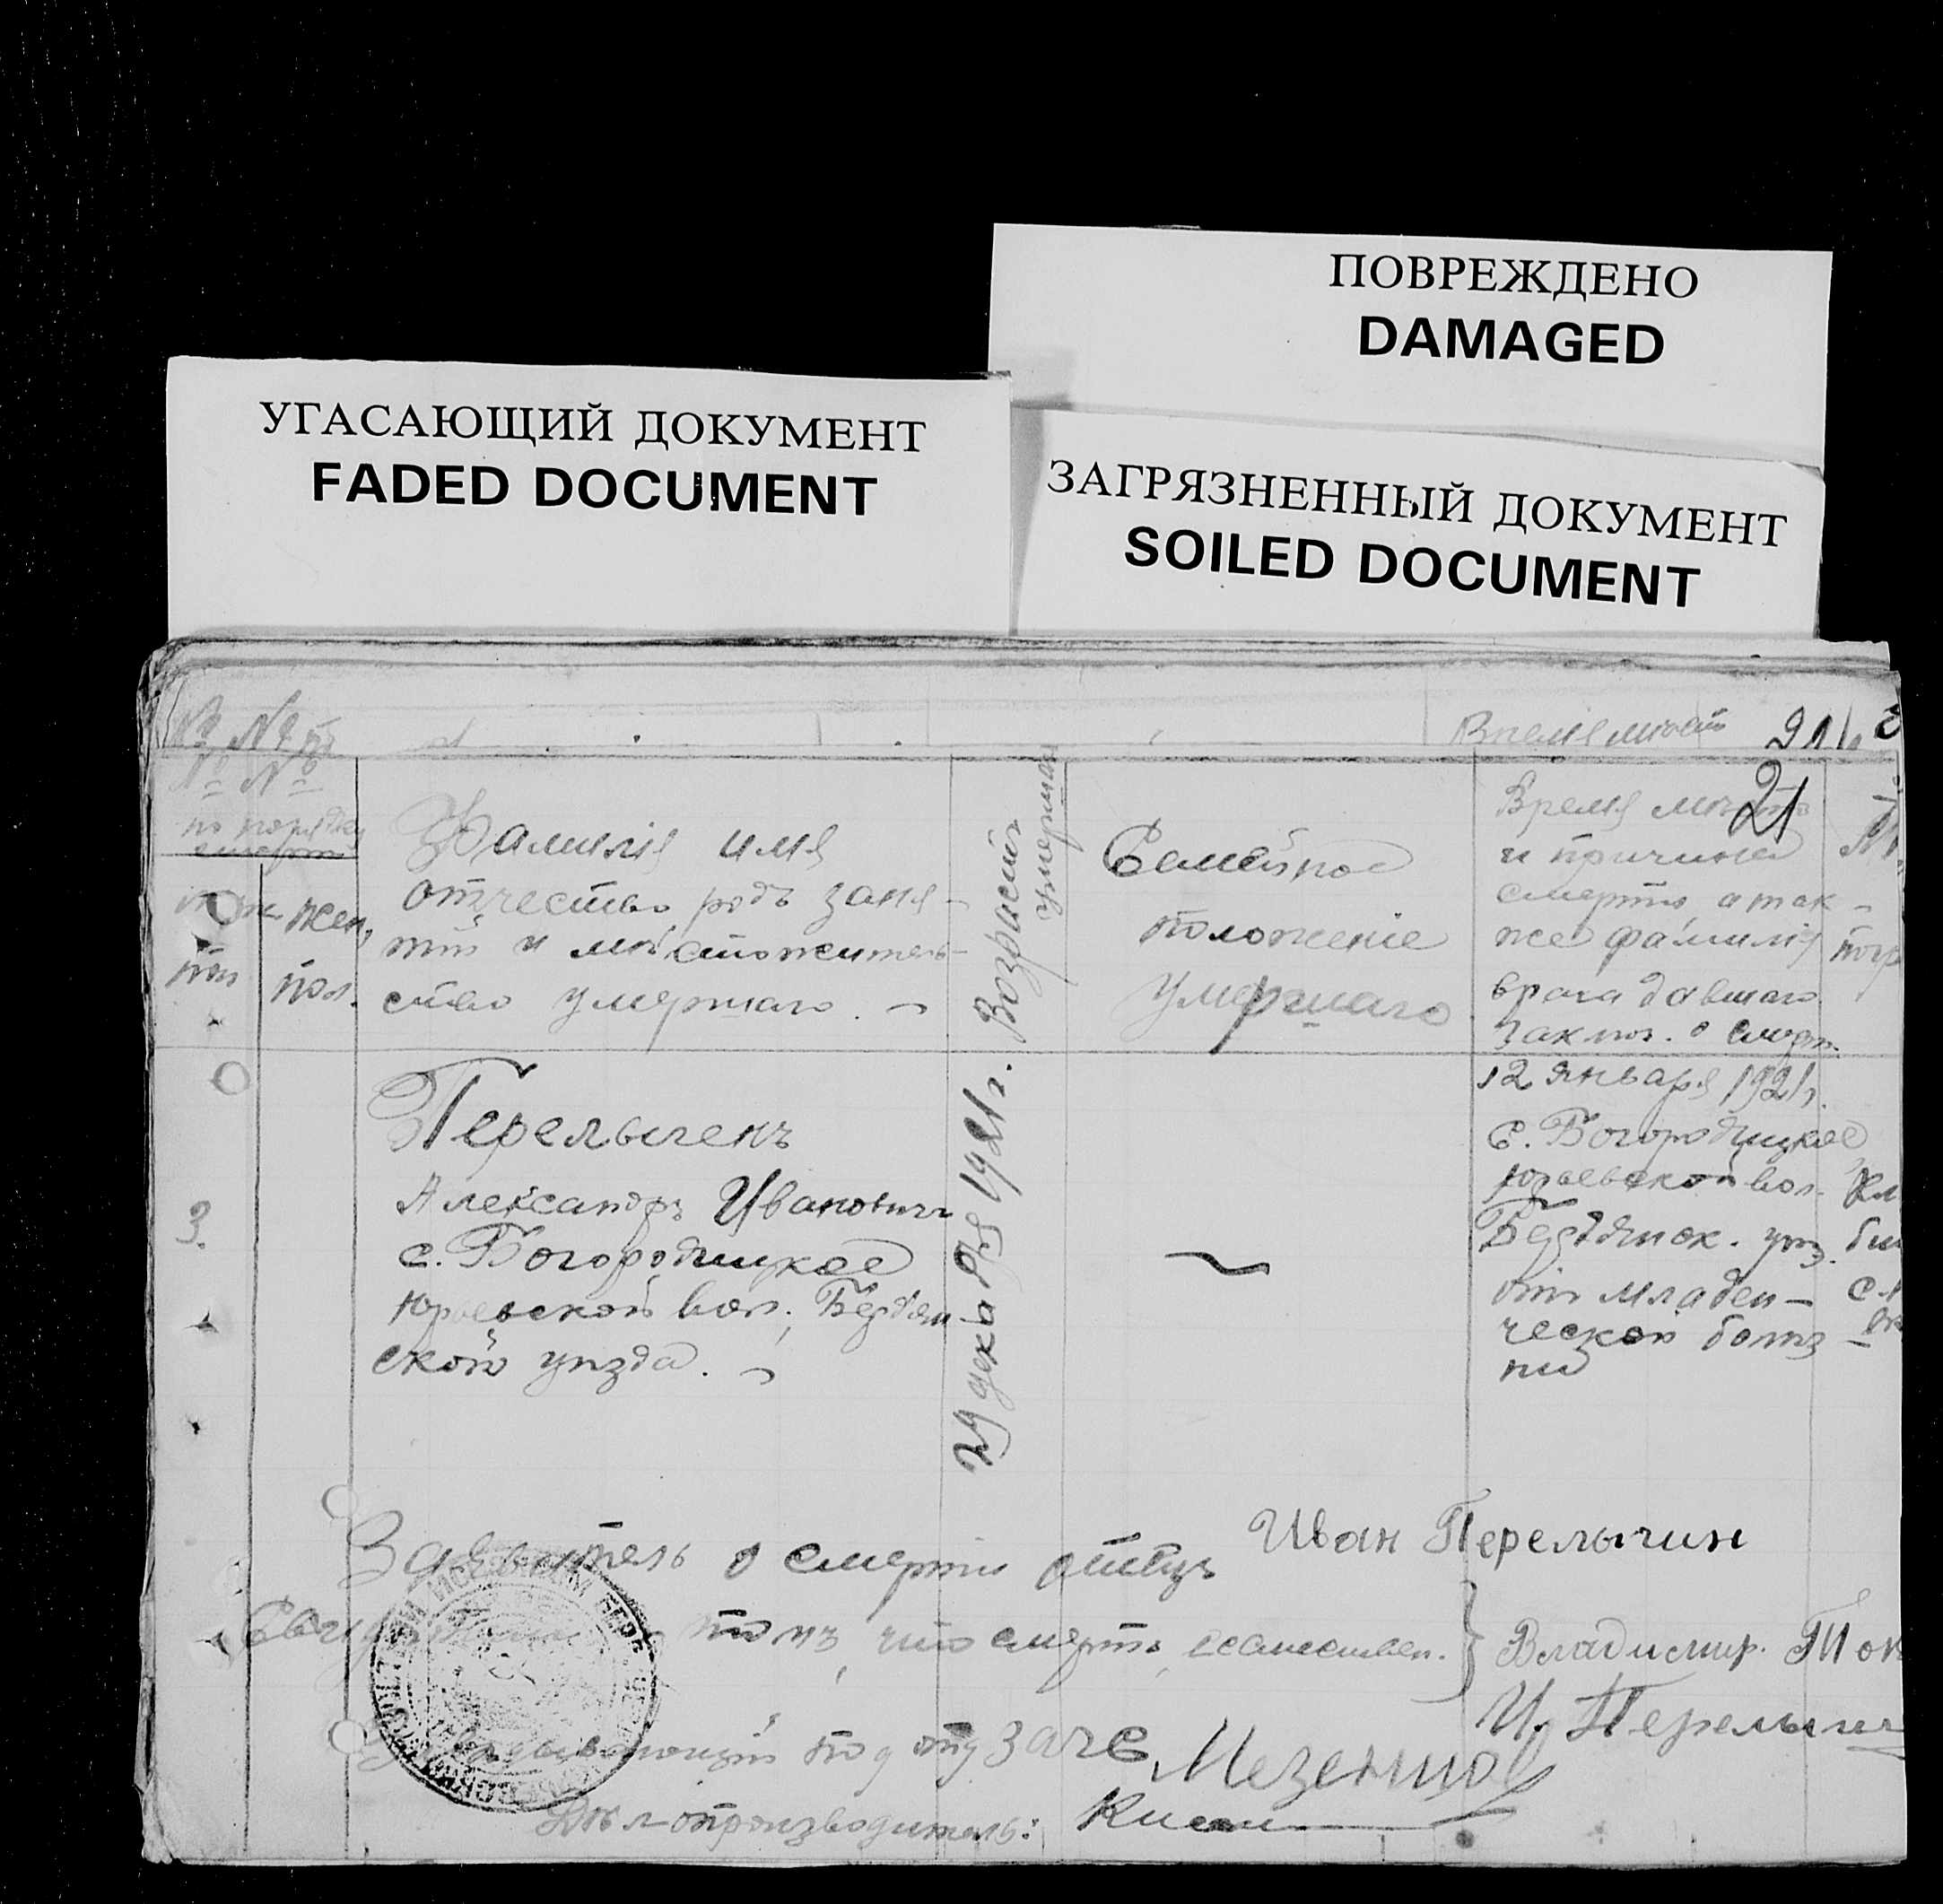 ПОВРЕЖДЕНО
DAMAGED
УГАСАЮЩИЙ ДОКУМЕНТ
FADED DOCUMENT
ЗАГРЯЗНЕННЫЙ ДОКУМЕНТ
SOILED DOCUMENT
21
№ №
по порядку
смерти
муж.
пол
жен.
пол.
Фамилія имя
отчество, родъ заня-
тій и мѣстожитель-
ство умершаго.
Возрастъ
умершаго
Семейное
положеніе
умершаго
Время мѣсто
и причина
смерти, а так-
же фамилія
врача давшаго
заключ. о смерт.
погр
3.
Перелыгенъ
Александръ Ивановичъ
с. Богородицкое
Юрьевской вол. Бердян-
ской уѣзда.
29 декабря 1921 г.
12 января 1921 г.
с. Богородицкое
Юрьевской вол.
Бердянск. уѣз.
отъ младен-
ческой болѣз-
ни
Заявитель о смерти отецъ Иван Перелыгин
томъ, что смерть естествен. } Владимир. Ток
И. Перелыги
под отд загс Мезенцов
Дѣлопроизводитель: